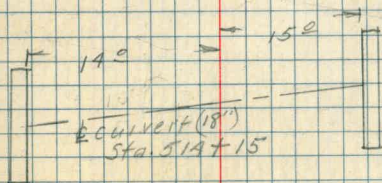 15⁰
14⁰
℄ culvert (18")
Sta. 514+15